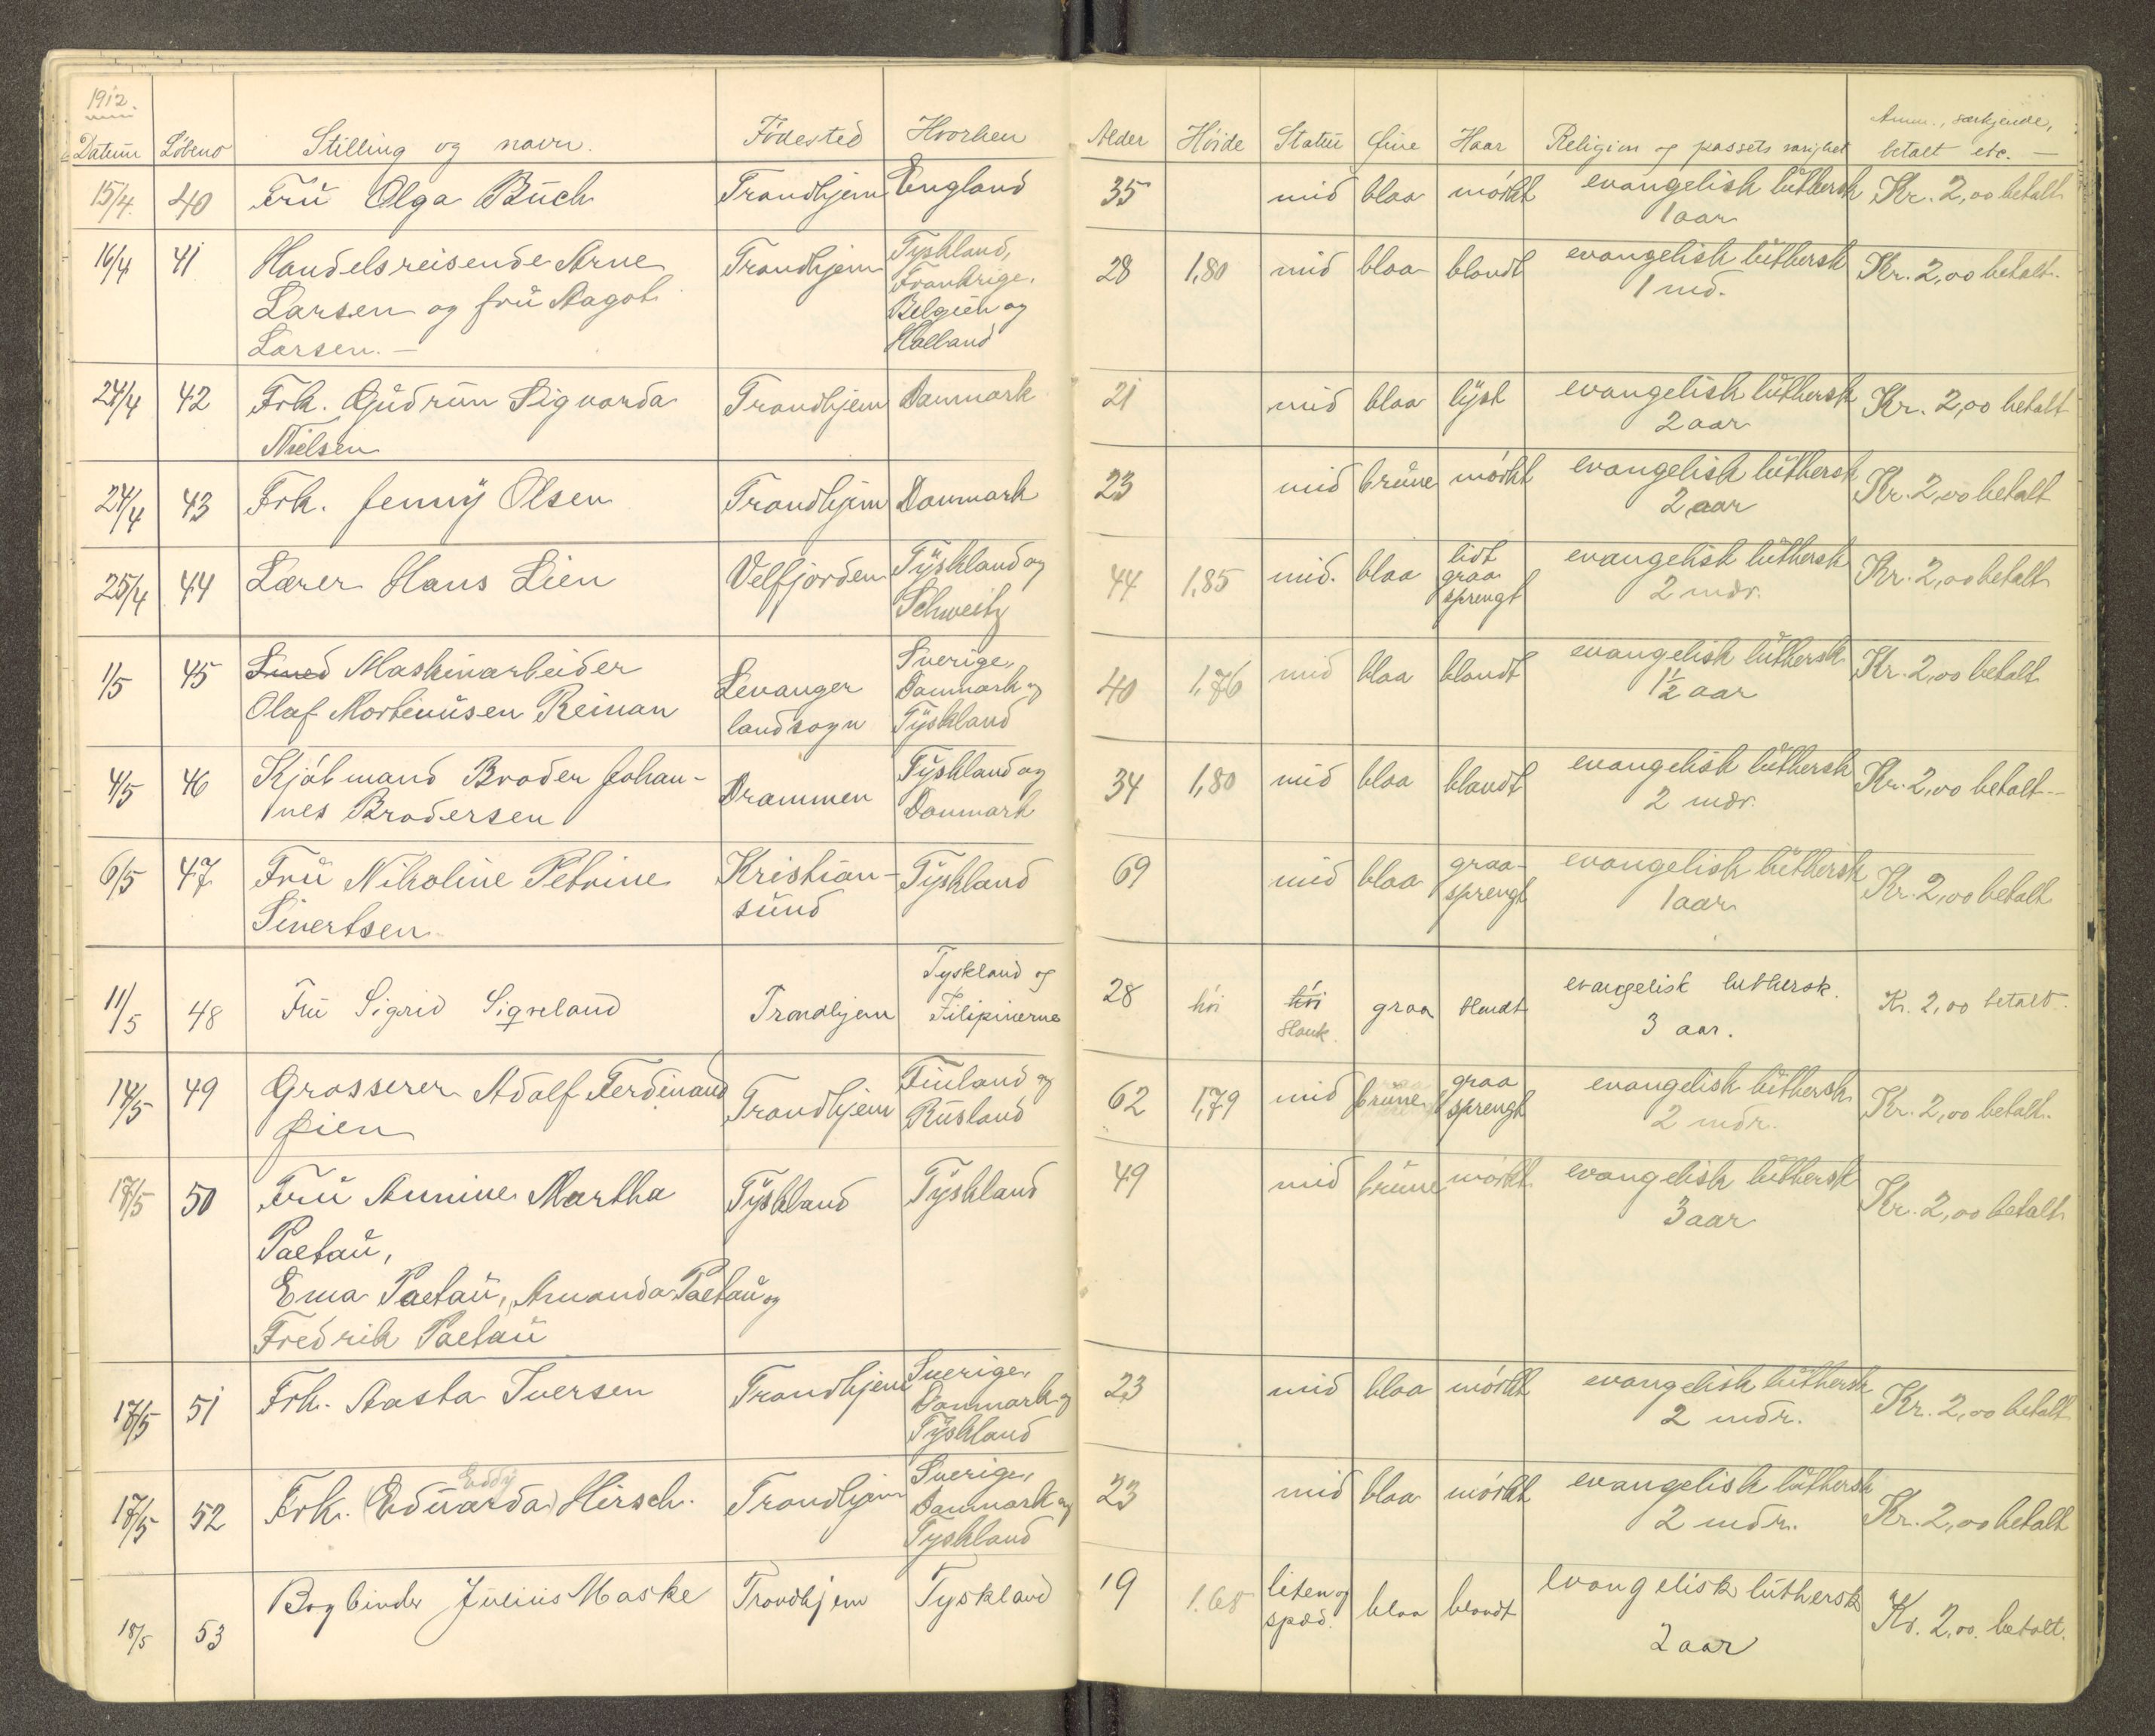 1912.
Datum Løbeno Stilling og navn. Födested Hvorhen Alder Høide Statur Øine Haar Religion og passets varighet Anm., særkjende,
betalt etc. —
15/4. 40 Frü Olga Büch Trondhjem England 35 mid blaa mörkt evangelisk lüthersk Kr. 2,00 betalt
1 aar
16/4 41 Handelsreisende Arne Trondhjem Tyskland, 28 1,80 mid blaa blondt evangelisk lüthersk Kr. 2,00 betalt.
Larsen og frü Magot Frankrige, 1 md.
Larsen. — Belgien og
Holland
24/4 42 Frk. Güdrün Sigvarda Trondhjem Danmark 21 mid blaa lyst evangelisk lüthersk Kr. 2,00 betalt
Nielsen 2 aar
24/4 43 Frk. Jenny Olsen Trondhjem Danmark 23 mid brüne mörkt evangelisk lüthersk Kr. 2,00 betalt
2 aar
25/4 44 Lærer Hans Lien Velfjorden Tyskland og 44 1,85 mid. blaa lidt evangelisk lüthersk Kr. 2,00 betalt
Schweitz graa 2 mdr.
sprengt
1/5 45 Maskinarbeider Levanger Sverige, 40 1,76 mid blaa blondt evangelisk lüthersk Kr. 2,00 betalt
Olaf Mortenüsen Reinan landsogn Danmark og 1½ aar
Tyskland
4/5 46 Kjöbmand Broder Johan- Drammen Tyskland og 34 1,80 mid blaa blondt evangelisk lüthersk Kr. 2,00 betalt.—
nes Brodersen Danmark 2 mdr.
6/5 47 Frü Nikoline Petrine Kristian- Tyskland 69 mid blaa graa- evangelisk lüthersk Kr. 2,00 betalt
Sivertsen sünd sprengt 1 aar
11/5 48 Frü Sigrid Sigveland Trondhjem Tyskland og 28 höi höi graa blondt evangelisk luthersk. Kr. 2,00 betalt.
Filipinerne slank. 3 aar.
14/5 49 Grosserer Adolf Ferdinand Trondhjem Finland og 62 1,79 mid brüne graa evangelisk lüthersk Kr. 2,00 betalt.
Øien Rüsland sprengt 2 mdr.
17/5 50 Frü Annine Martha Tyskland Tyskland 49 mid brüne mörkt evangelisk lüthersk Kr. 2,00 betalt
Paetaü, 3 aar
Ema Paetaü, Amanda Paetaü og
Fredrik Paetaü
17/5 51 Frk. Aasta Iversen Trondhjem Sverige, 23 mid blaa mörkt evangelisk lüthersk Kr. 2,00 betalt
Danmark og 2 mdr.
Tyskland
17/5 52 Frk. (Edüarda) Eddy Hirsch. Trondhjem Sverige, 23 mid blaa mörkt evangelisk lüthersk Kr. 2,00 betalt
Danmark og 2 mdr.
Tyskland
18/5 53 Bogbinder Jülius Maske Trondhjem Tyskland 19 1.65 liten og blaa blondt evangelisk lüthersk Kr. 2,00. betalt.
spæd. 2 aar